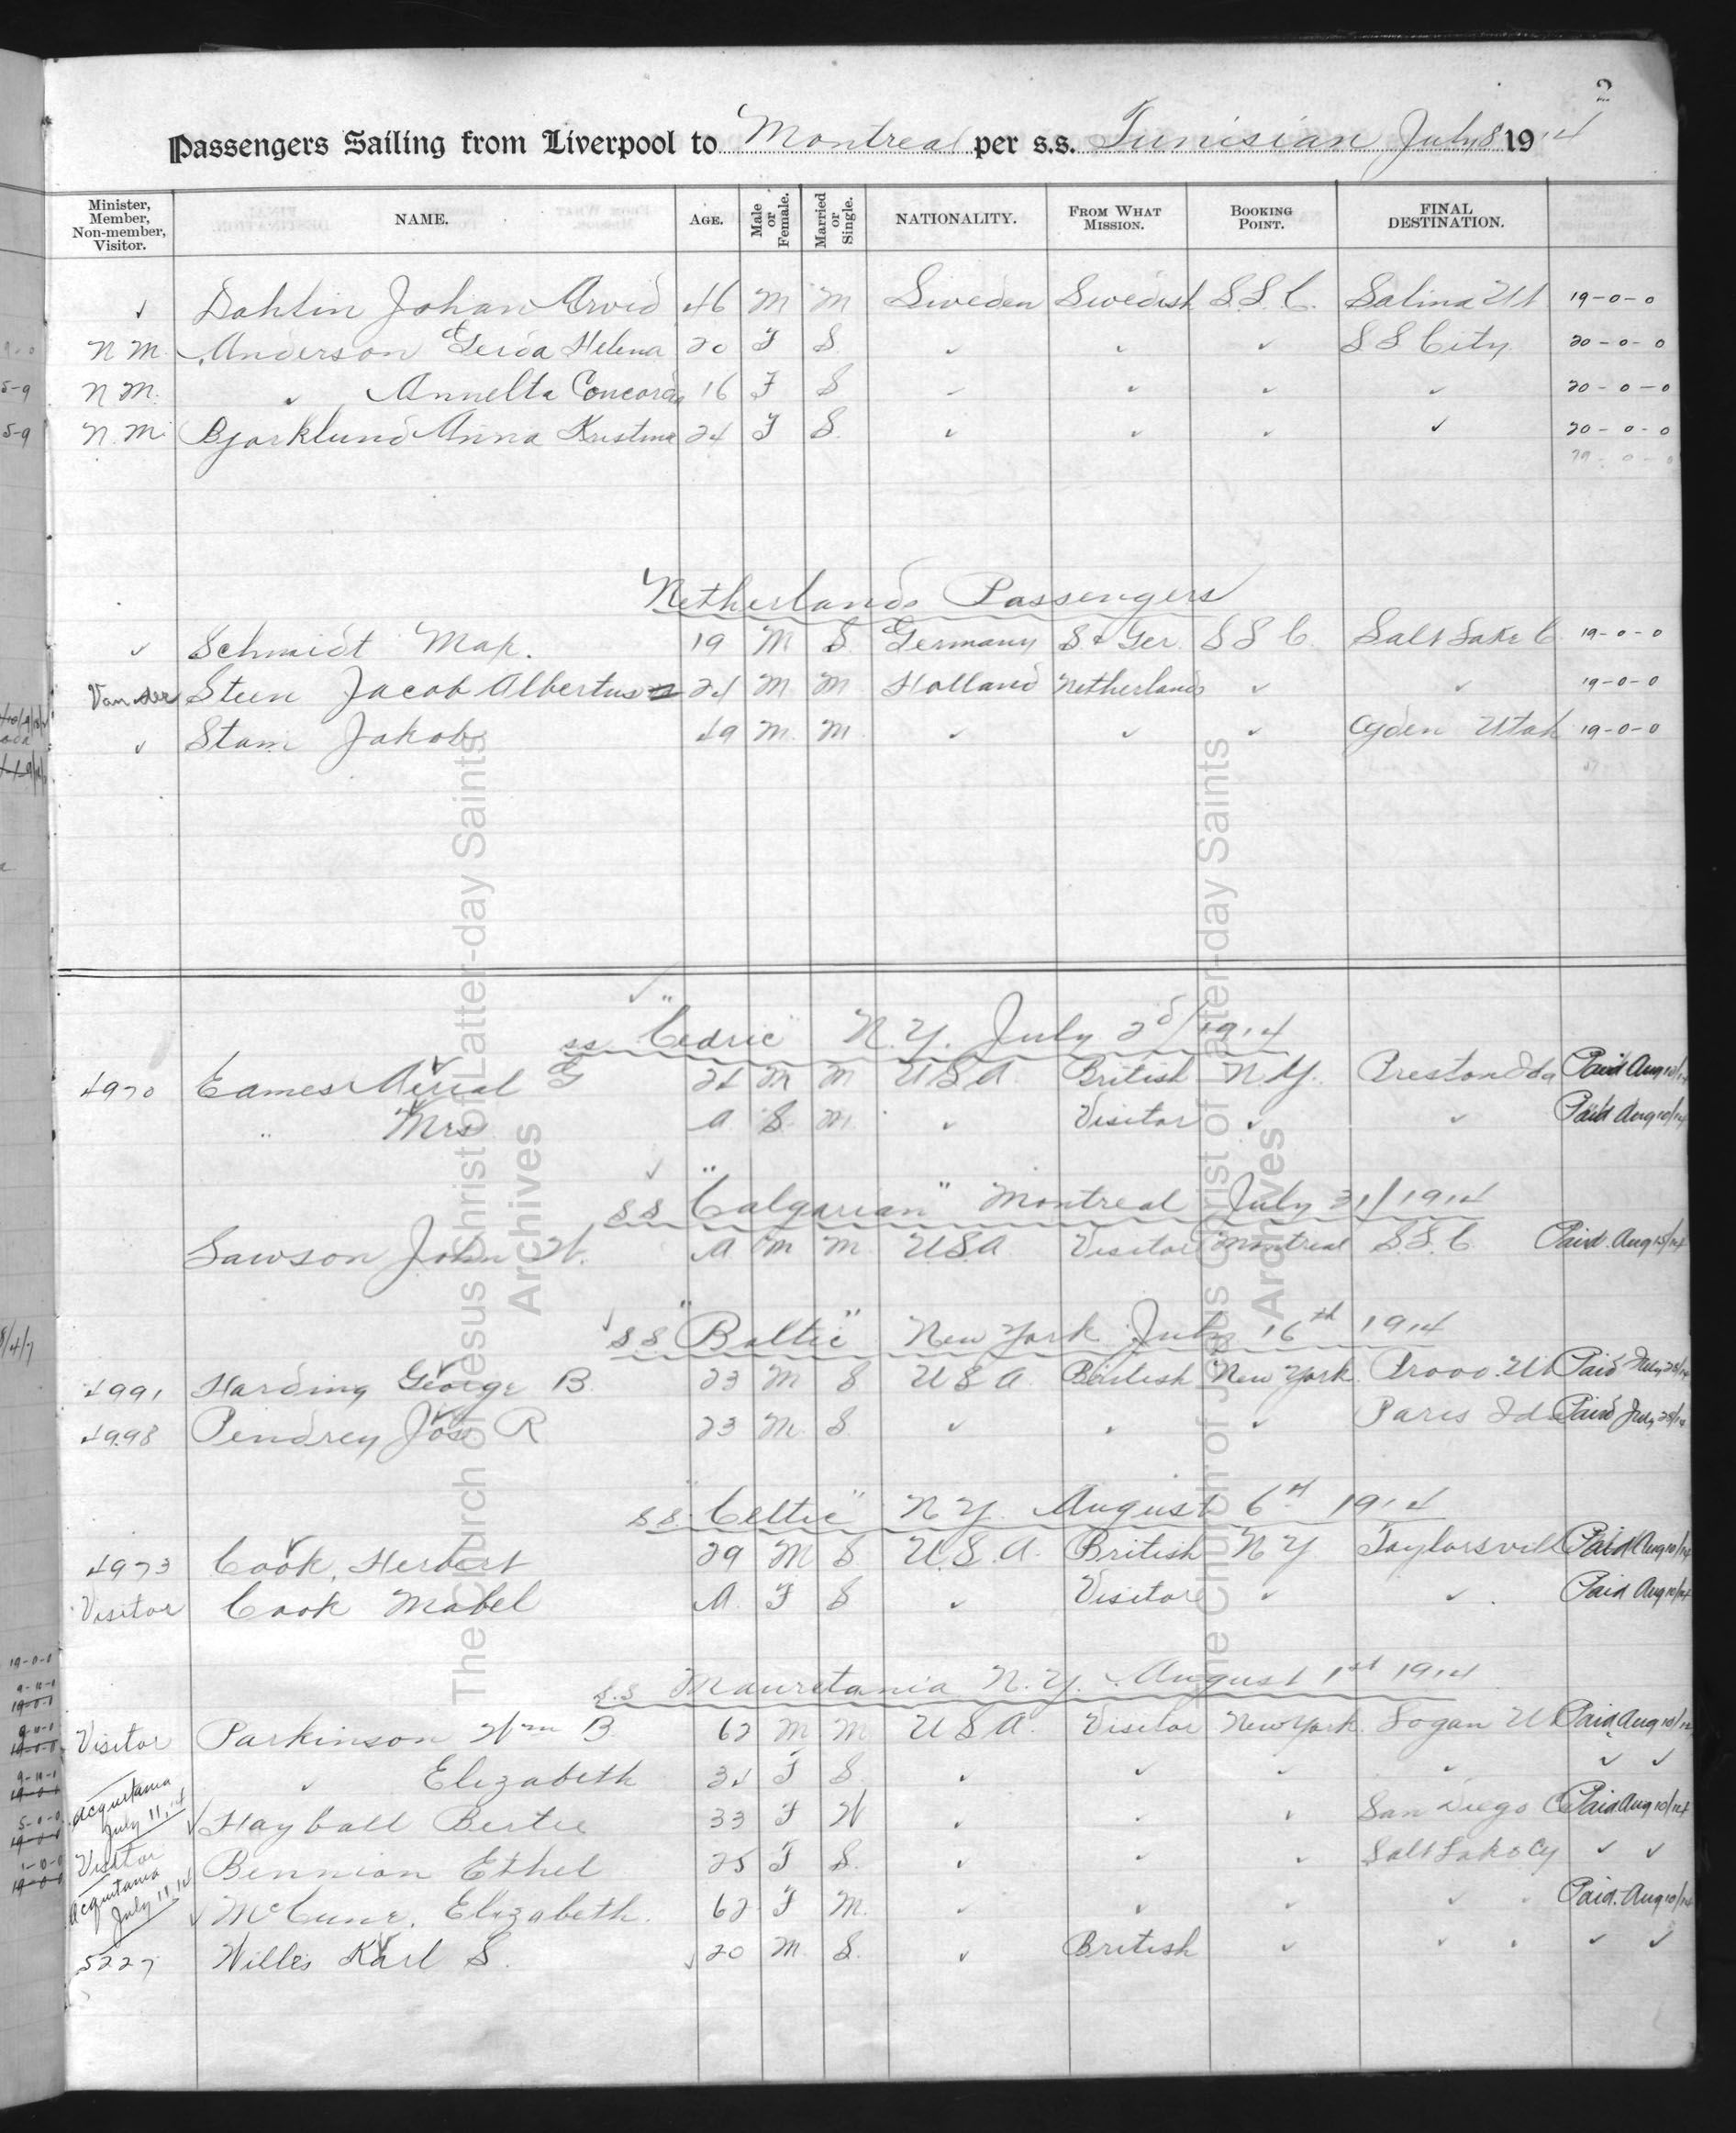 2
Passengers Sailing from Liverpool to Montreal per s.s. Tunisian July 8 1914
Minister, Member, Non-member, Visitor. NAME. AGE. Male or Female. Married or Single. NATIONALITY. FROM WHAT MISSION. BOOKING POINT. FINAL DESTINATION.
✓ Dahlin Johan Arvid 46 M M Sweden Swedish S.L.C. Salina Ut 19-0-0
N M. Anderson Gerda Helena 20 F S ✓ ✓ ✓ S L City 20-0-0
N M. ✓ Annelta Concordia 16 F S ✓ ✓ ✓ ✓ 20-0-0
N. M. Bjorklund Anna Kristina 24 F S. ✓ ✓ ✓ ✓ 20-0-0
Netherlands Passengers
✓ Schmidt Max. 19 M S. Germany S & Ger. S L C. Salt Lake C. 19-0-0
Van der Steen Jacob Albertus 24 M M Holland Netherlands ✓ ✓ 19-0-0
✓ Stam Jakob 49 M. M ✓ ✓ ✓ Ogden Utah 19-0-0
ss "Cedric" N.Y. July 2d/1914
4970 Eames Aerial G 24 M M U S A British N.Y. Preston Ida Paid Aug 10/14
" Mrs A. S. M. ✓ Visitor ✓ ✓ Paid Aug 10/14
s s "Calgarian" Montreal July 31/1914
Lawson John W. A M M. U S A Visitor Montreal S.L.C. Paid. Aug 15/14
s s "Baltic" New York July 16th 1914
4991 Harding George B. 23 M S U S A British New York. Provo. Ut Paid July 28/14
4998 Pendrey Jos R 23 M. S. ✓ ✓ ✓ Paris Ida Paid July 28/14
s s "Celtic" N Y. August 6th 1914
4973 Cook, Herbert 29 M S U.S.A. British N Y Taylorsvill Paid Aug 10/14
Visitor Cook Mabel A. F S ✓ Visitor ✓ ✓ Paid Aug 10/14
s.s Mauretania N.Y. August 1st 1914
Visitor Parkinson Wm B. 62 M M U S A. Visitor New York. Logan Ut Paid Aug 10/14
✓ Elizabeth 34 F S. ✓ ✓ ✓ ✓ ✓ ✓
Acquitania July 11, 14 ✓ Hayball Bertie 33 F W ✓ ✓ ✓ San Diego C Paid Aug 10/14
Visitor Bennion Ethel 25 F S. ✓ ✓ ✓ Salt Lake Cy ✓ ✓
Acquitania July 11 14 ✓ McCune, Elizabeth. 62 F M. ✓ ✓ ✓ ✓ Paid. Aug 10/14
5227 Willes Karl S. ✓ 20 M. S. ✓ British ✓ ✓ ✓ ✓
The Church of Jesus Christ of Latter-day Saints
Archives
The Church of Jesus Christ of Latter-day Saints
Archives